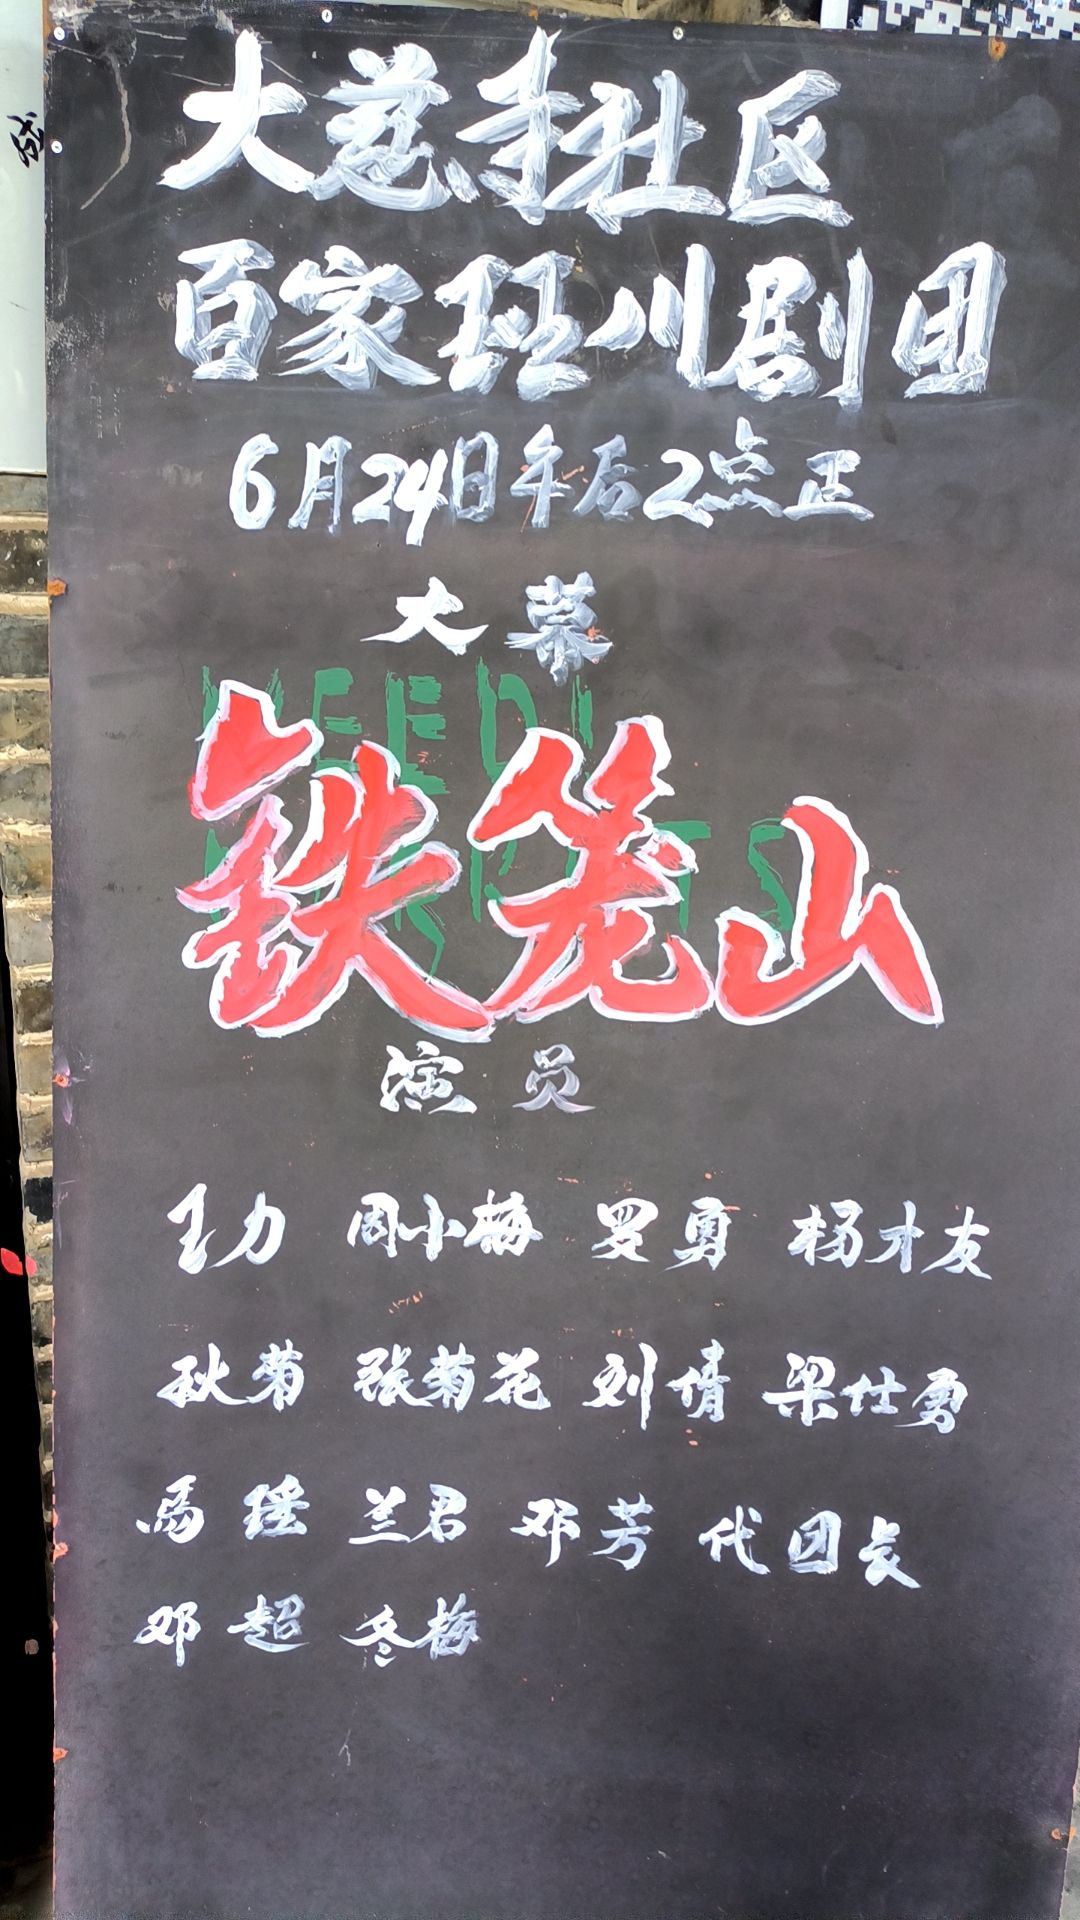 大慈寺社区
百家班川剧团
6月24日午后2点正
大荣
铁笼山
演员
王力 周小梅 罗勇 杨才友
狄菊 张菊花 刘倩 梁仕勇
馬瑶 兰君 邓芳 代团长
邓超 冬梅